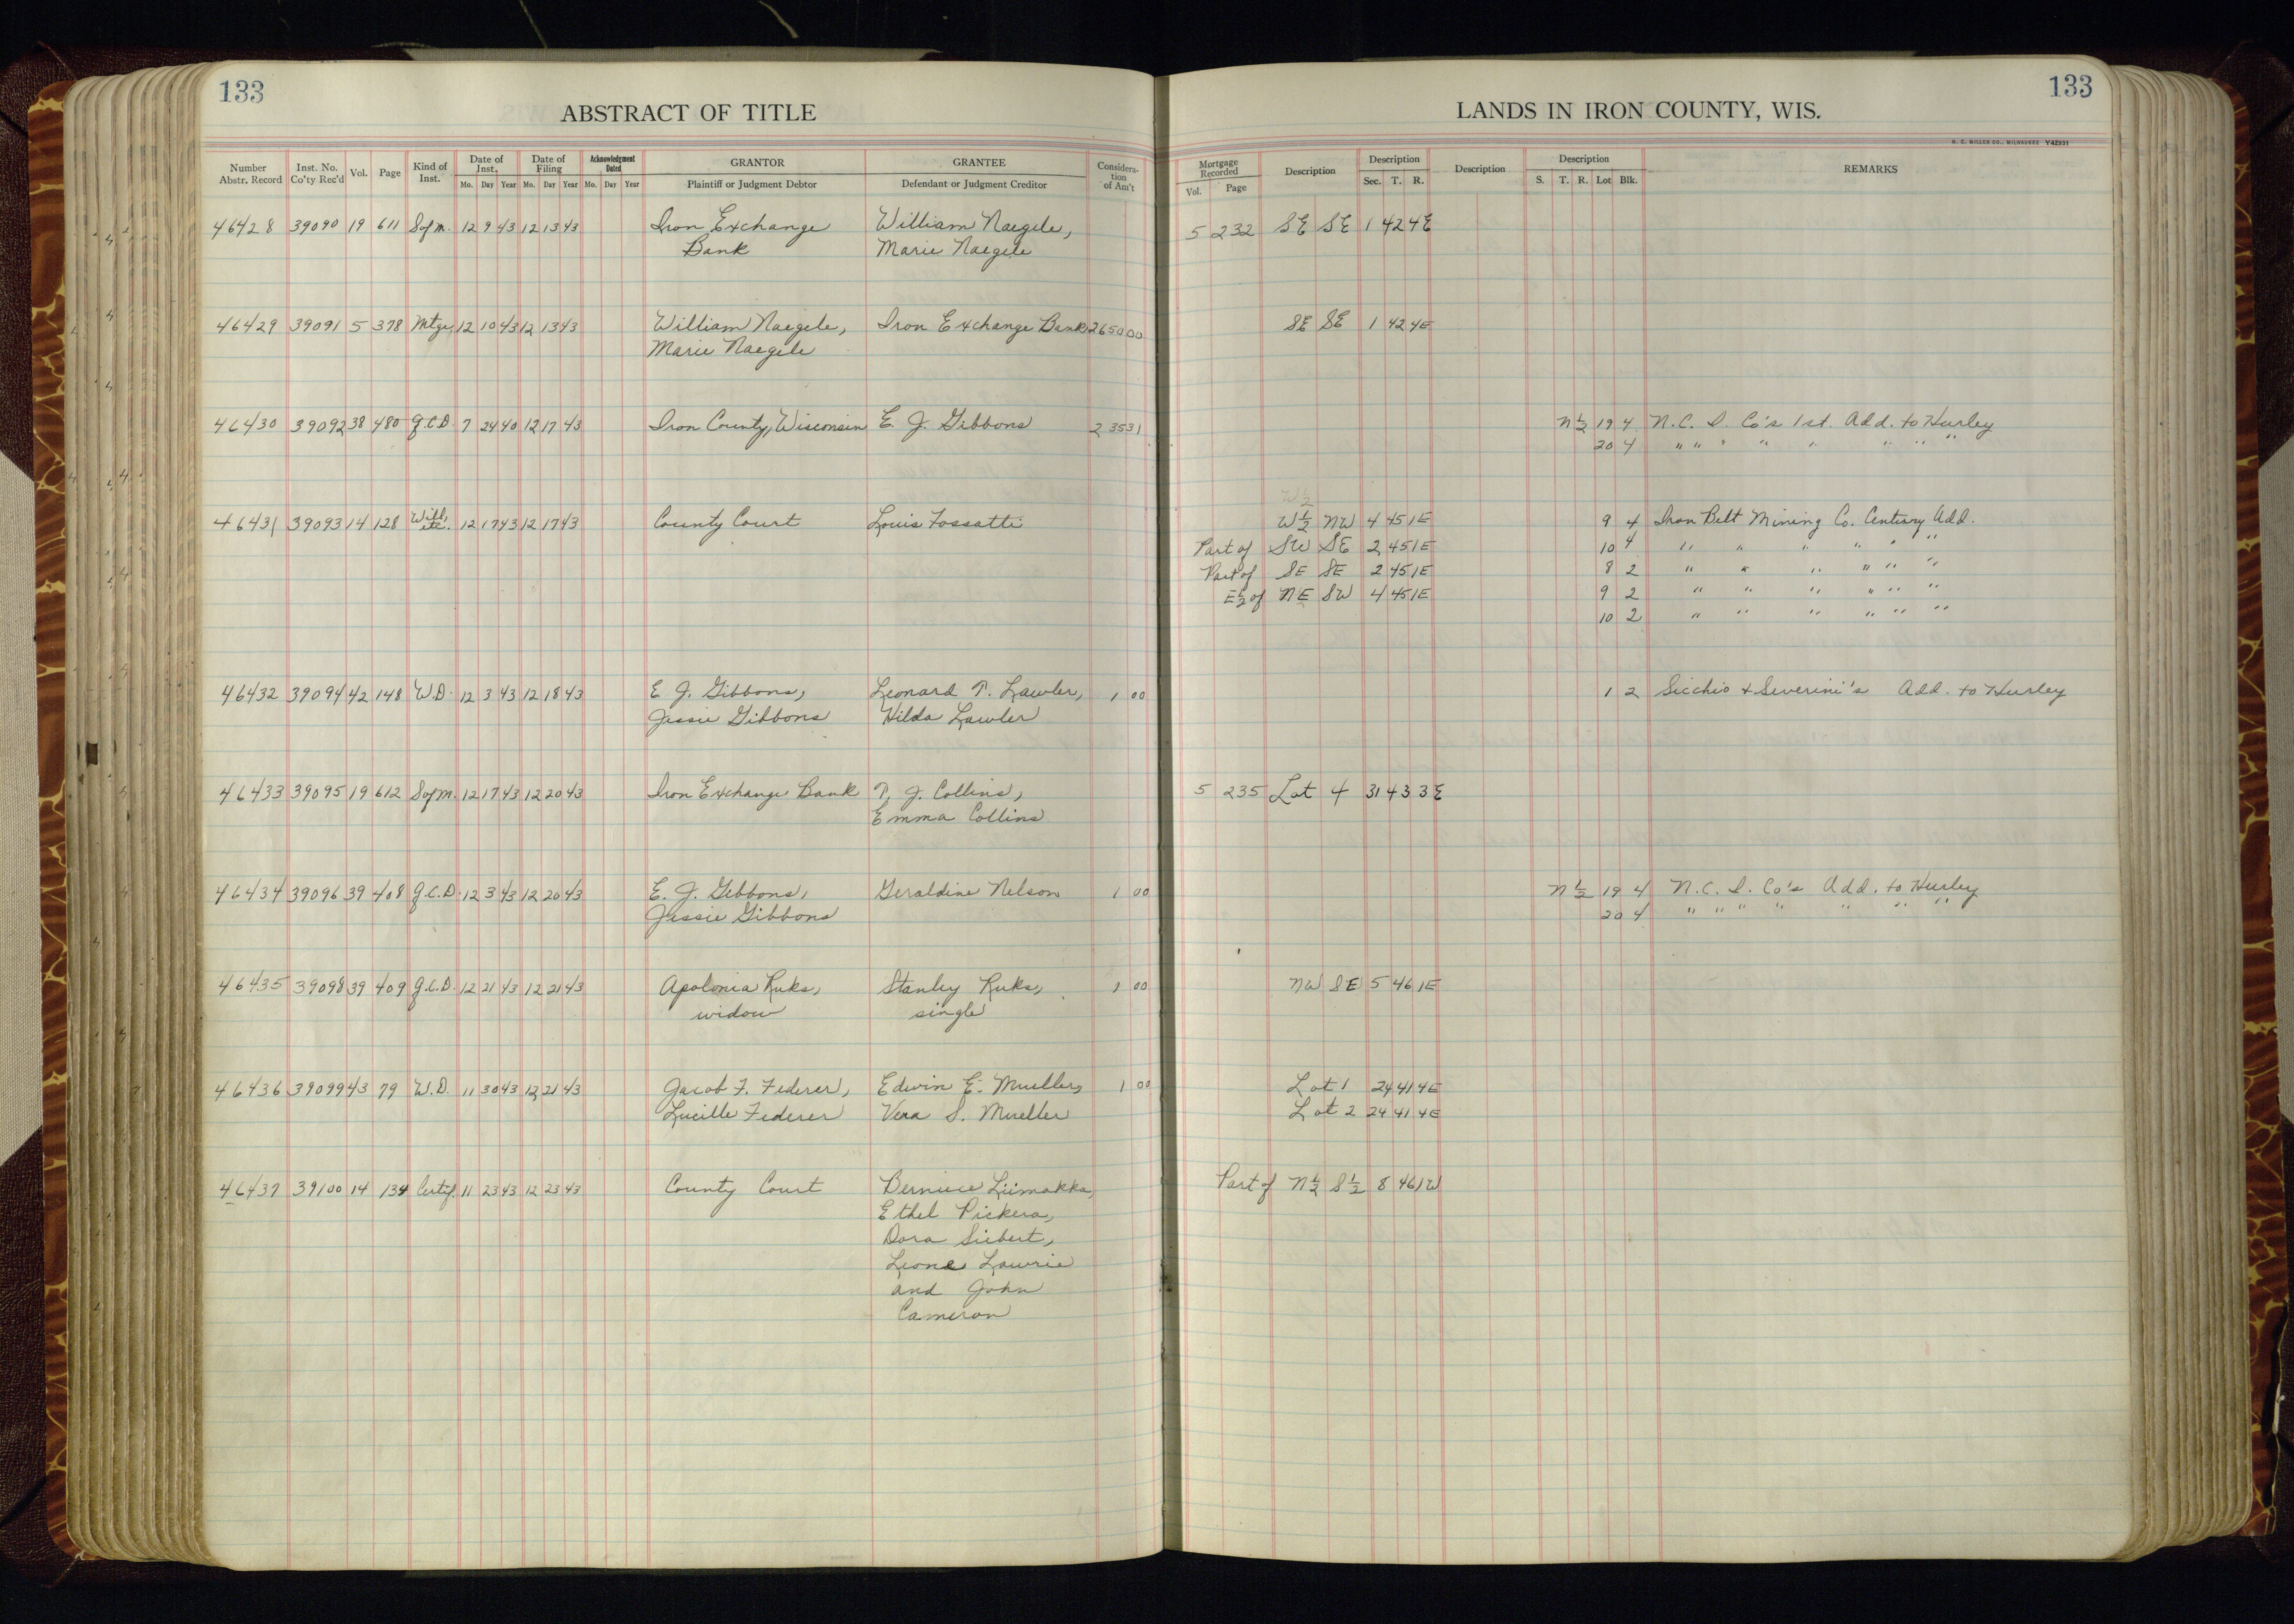 133
ABSTRACT OF TITLE
Number Abstr. Record | Inst. No. Co'ty Rec'd | Vol. | Page | Kind of Inst. | Date of Inst. Mo. Day Year | Date of Filing Mo. Day Year | Acknowledgment Dated Mo. Day Year | GRANTOR Plaintiff or Judgment Debtor | GRANTEE Defendant or Judgment Creditor | Consideration of Am't
46428 39090 19 611 S of M. 12 9 43 12 13 43 Iron Exchange William Naegele,
Bank Marie Naegele
46429 39091 5 378 Mtge, 12 10 43 12 13 43 William Naegele, Iron Exchange Bank 2650 00
Marie Naegele
46430 39092 38 480 Q.C.D. 7 24 40 12 17 43 Iron County, Wisconsin E. J. Gibbons 235 31
46431 39093 14 128 Will, etc. 12 17 43 12 17 43 County Court Louis Fossatti
46432 39094 42 148 W.D. 12 3 43 12 18 43 E. J. Gibbons, Leonard T. Lawler, 1 00
Jessie Gibbons Hilda Lawler
46433 39095 19 612 S of M. 12 17 43 12 20 43 Iron Exchange Bank T. J. Collins,
Emma Collins
46434 39096 39 408 Q.C.D. 12 3 43 12 20 43 E. J. Gibbons, Geraldine Nelson 1 00
Jessie Gibbons
46435 39098 39 409 Q.C.D. 12 21 43 12 21 43 Apolonia Ruks, Stanley Ruks, 1 00
widow single
46436 39099 43 79 W.D. 11 30 43 12 21 43 Jacob F. Federer, Edwin E. Mueller, 1 00
Lucille Federer Vera S. Mueller
46437 39100 14 134 Certif. 11 23 43 12 23 43 County Court Berniece Liimakka,
Ethel Pickera,
Dora Siebert,
Leone Lawrie
and John
Cameron
133
LANDS IN IRON COUNTY, WIS.
H. C. MILLER CO., MILWAUKEE Y42931
Mortgage Recorded Vol. Page | Description | Description Sec. T. R. | Description | Description S. T. R. Lot Blk. | REMARKS
5 232 SE SE 1 42 4E
SE SE 1 42 4E
N½ 19 4 N.C. I. Co's 1st. Add. to Hurley
20 4 " " " " " " " "
W½
W½ NW 4 45 1E 9 4 Iron Belt Mining Co. Century Add.
Part of SW SE 2 45 1E 10 4 " " " " " "
Part of SE SE 2 45 1E 8 2 " " " " " "
E½ of NE SW 4 45 1E 9 2 " " " " " "
10 2 " " " " " "
1 2 Sicchio & Severini's Add. to Hurley
5 235 Lot 4 31 43 3E
N½ 19 4 N.C. I. Co's Add. to Hurley
20 4 " " " " " " "
NW SE 5 46 1E
Lot 1 24 41 4E
Lot 2 24 41 4E
Part of N½ S½ 8 46 1W